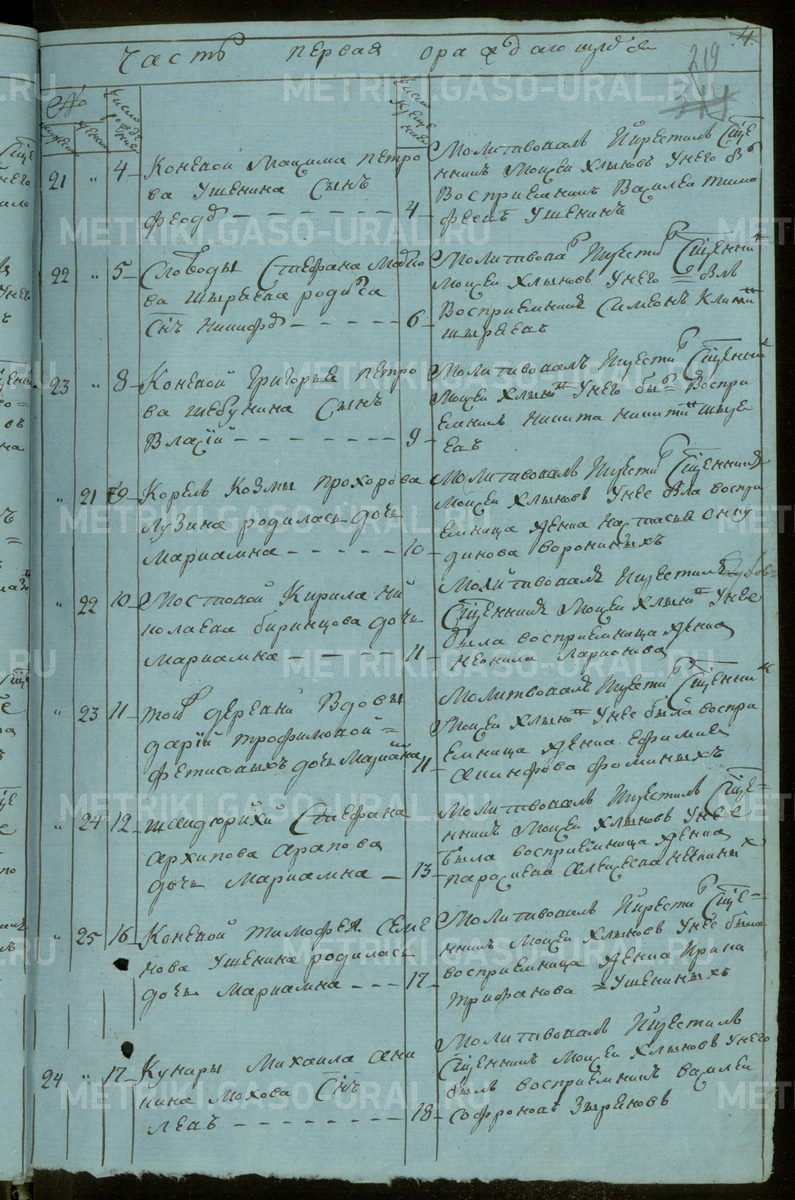 Часть первая о раждающихся
4.
219
№
мужеска
женска
число рождения
число крещения
21 " 4 Коневои Максима петро
ва Ушенина Сынъ
Феодоръ 4
Молитвовалъ И крестилъ Сщ҃е
нникъ Моисеи Хлыновъ У него былъ
Восприемникъ Василеи тимо
феевъ Ушенинъ
22 " 5 Слободы Стефана
ва Шырѣева родился
Сн҃ъ Никифоръ 6
Молитвовалъ И крестилъ Сщ҃енникъ
Моисеи Хлыновъ У него былъ
Восприемникъ Симеонъ
Шырѣевъ
23 " 8 Коневой Григорья петро
ва Шебунина Сынъ
Власий 9
Молитвовалъ И крестилъ Сщ҃енникъ
Моисеи Хлыновъ У него былъ Воспри
емникъ Никита Никитинъ Шыре
евъ
" 21 9 Корелъ Козмы Прохорова
Лузина родилась дочь
Мариамна 10
Молитвовалъ И крестилъ Сщ҃енникъ
Моисеи Хлыновъ У нее была воспри
емница девица Настасья
динова Ворониныхъ
" 22 10 Мостовой Кирила Ни
колаева биринцова дочь
Мариамна 11
Молитвовалъ И крестилъ
Сщ҃енникъ Моисеи Хлыновъ У нее
была восприемница девица
Неонила Ларионова
" 23 11 той деревни Вдовы
дарьи трофимовой
фетисовыхъ дочь Мариамна 11
Молитвовалъ И крестилъ Сщ҃енникъ
Моисеи Хлыновъ У нее была воспри
емница девица Ефимия
Фоминыхъ
" 24 12 Стефана
архипова арапова
дочь Мариамна 13
Молитвовалъ И крестилъ Сщ҃е
нникъ Моисеи Хлыновъ У нее
была восприемница девица
параскева Алексеева
" 25 16 Коневой тимофея Семе
нова Ушенина родилась
дочь Мариамна 17
Молитвовалъ И крестилъ Сщ҃е
нникъ Моисеи Хлыновъ У нее была
восприемница девица Ирина
трифанова Ушениныхъ
24 " 17 Кунары Михаила Ани
кина Мохова Сн҃ъ
Левъ 18
Молитвовалъ И крестилъ
Сщ҃енникъ Моисеи Хлыновъ У него
былъ восприемникъ василеи
софроновъ Зыряновъ
METRIKI.GASO-URAL.RU